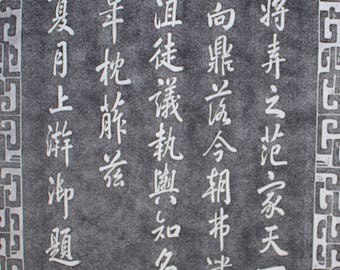 將弄之范家天
向鼎落今朝弗
沮徒議執輿知名
年枕蓛茲
夏月上澣御題